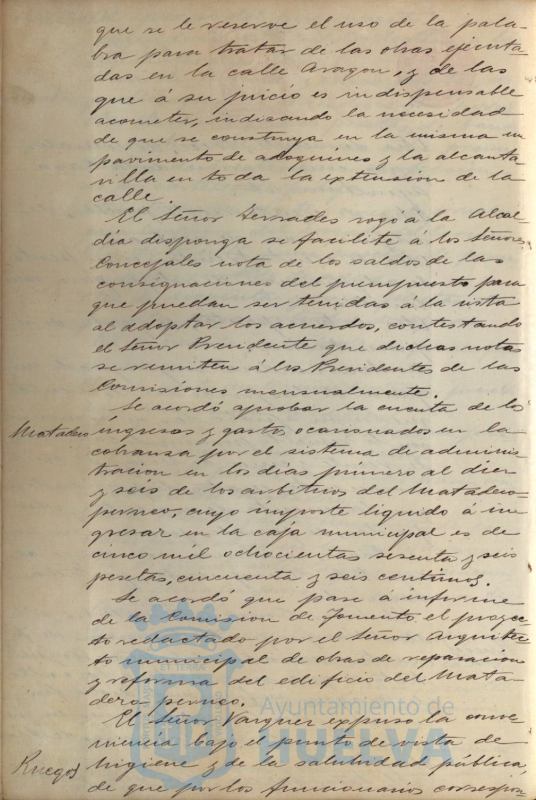 que se le reserve el uso de la pala-
bra para tratar de las obras ejecuta-
das en la calle Aragon, y de las
que á su juicio es indispensable
acometer, indicando la necesidad
de que se construya en la misma un
pavimento de adoquines y la alcanta
rilla en toda la extension de la
calle.
El Señor Terrades rogó á la Alcal-
día disponga se facilite á los Señores
Concejales nota de los saldos de las
consignaciones del presupuesto para
que puedan ser tenidas á la vista
al adoptar los acuerdos, contestando
el Señor Presidente que dichas notas
se remiten á los Presidentes de las
Comisiones mensualmente.
Se acordó aprobar la cuenta de los
Matadero ingresos y gastos ocasionados en la
cobranza por el sistema de adminis-
tracion en los días primero al diez
y seis de los arbitrios del Matadero
perneo, cuyo importe liquido á in-
gresar en la caja municipal es de
cinco mil ochocientas sesenta y seis
pesetas, cincuenta y seis centimos.
Se acordó que pase á informe
de la Comision de Fomento, el proyec-
to redactado por el Señor Arquitec-
to municipal de obras de reparacion
y reforma del edificio del Mata-
dero perneo.
El Señor Vazquez expuso la conve-
niencia bajo el punto de vista de
Ruegos higiene y de la salubridad pública,
de que por los funcionarios correspon-
Ayuntamiento de
HUELVA